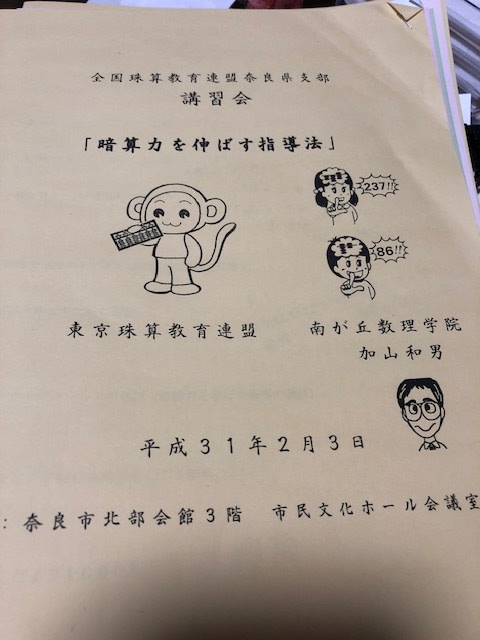 全国珠算教育連盟奈良県支部
講習会
「暗算力を伸ばす指導法」
237!!
86!!
東京珠算教育連盟
南が丘数理学院
加山和男
平成31年2月3日
: 奈良市北部会館3階 市民文化ホール会議室